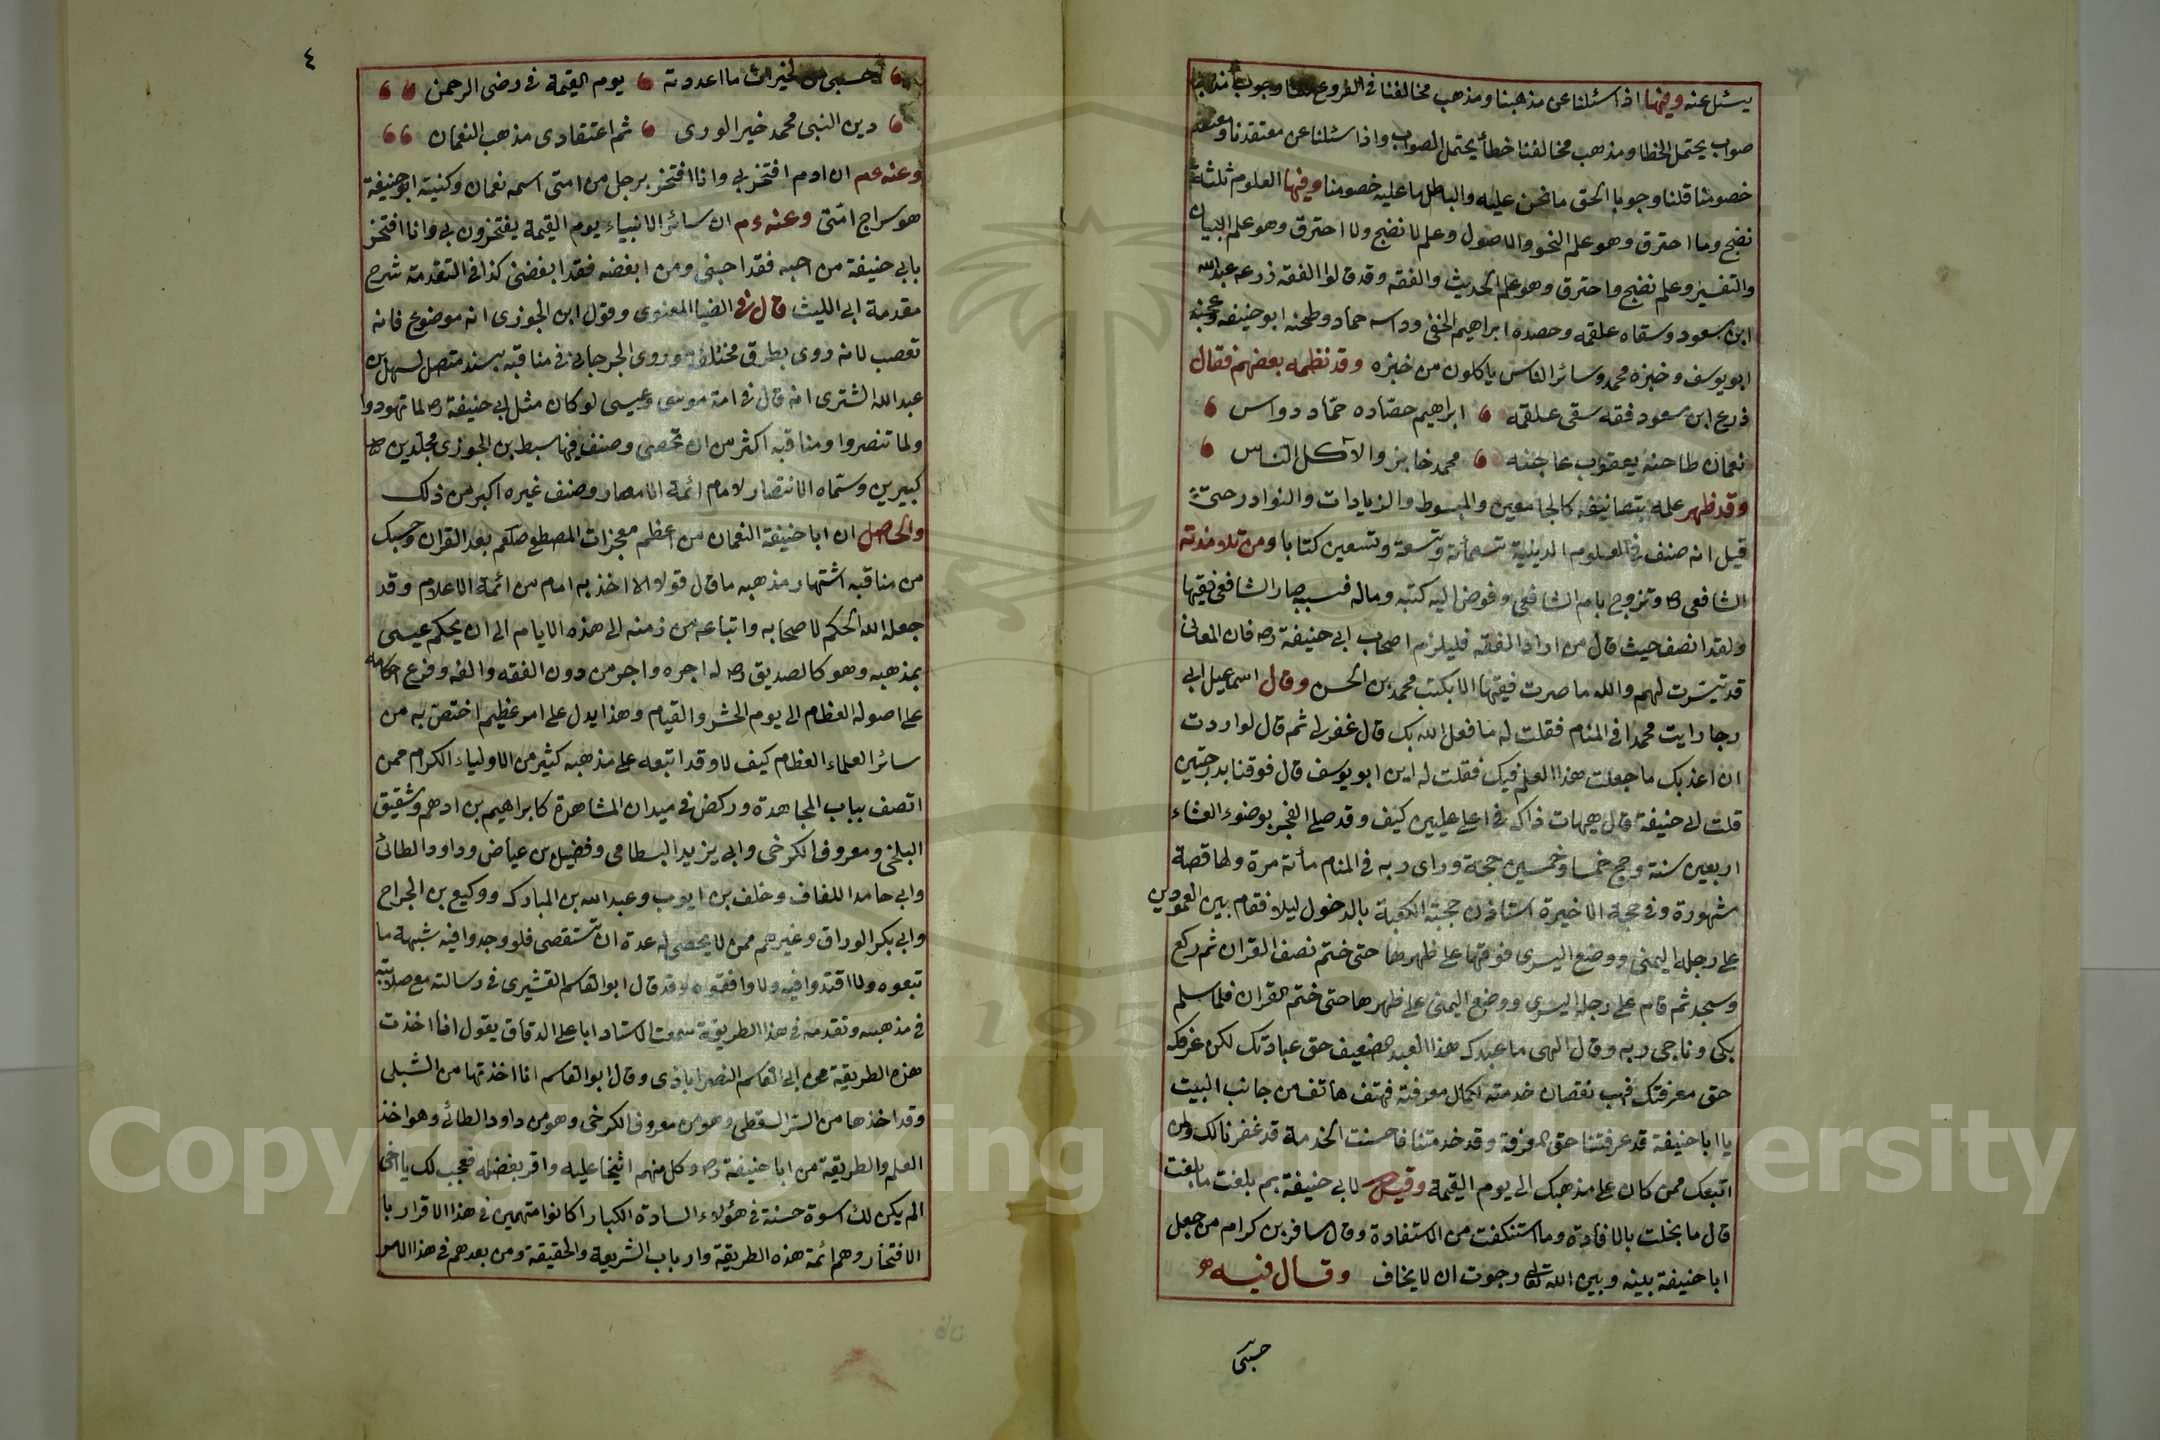 يسئل عنه وفيها اذا سئلنا عن مذهبنا ومذهب مخالفنا في الفروع قلنا وجوبا مذهبنا
صواب يحتمل الخطا ومذهب مخالفنا خطأ يحتمل الصواب واذا سئلنا عن معتقدنا ومعتقد
خصومنا قلنا وجوبا الحق ما نحن عليه والباطل ما عليه خصومنا وفيها العلوم ثلثة
نضج وما احترق وهو علم النحو والاصول وعلم لا نضج ولا احترق وهو علم البيان
والتفسير وعلم نضج واحترق وهو علم الحديث والفقه وقد قالوا الفقه زرعه عبدالله
ابن مسعود وسقاه علقمه وحصده ابراهيم النخفى وداسه حماد وطحنه ابو حنيفه وعجنه
ابو يوسف وخبزه محمد وسائر الناس ياكلون من خبزه وقد نظمه بعضهم فقال
زرع ابن مسعود فقه سقى علقمه ابراهيم حصاده حماد دواس
نعمان طاحنه يعقوب عاجنه محمد خابز والآكل الناس
وقد ظهر علمه بتصانيفه كالجامعين والمبسوط والزيادات والنوادر حتى
قيل انه صنف في العلوم الدينية تسعمأته وتسعة وتسعين كتابا ومن تلامذته
الشافعى وتزوج بام الشافعى وفوض اليه كتبه وماله فسببه صار الشافعى فقيها
ولقد انصف حيث قال من اراد الفقه فليلزم اصحاب ابى حنيفة فان المعانى
قد تيسرت لهم والله ما صرت فقيها الا بكتب محمد بن الحسن وقال اسماعيل ابى
رجا رايت محمدا في المنام فقلت له ما فعل الله بك قال غفر لى ثم قال لو اردت
ان اعذبك ما جعلت هذا العلم فيك فقلت له اين ابو يوسف قال فوقنا بدرجتين
قلت لابى حنيفة قال هيهات ذاك في اعلى عليين كيف وقد صلى الفجر بوضوء العشاء
اربعين سنة وحج خمسا وخمسين حجة وراى ربه في المنام مأته مرة ولها قصة
مشهورة وفي حجة الاخيرة استاذن حجبة الكعبة بالدخول ليلا فقام بين العمودين
على رجله اليمنى ووضع اليسرى فوقها على ظهرها حتى ختم نصف القران ثم ركع
وسجد ثم قام على رجله اليسرى ووضع اليمنى على ظهرها حتى ختم القران فلما سلم
بكى وناجى ربه وقال الهى ما عبدك هذا العبد الضعيف حق عبادتك لكن عرفك
حق معرفتك فهب نقصان خدمته لكمال معرفته فهتف هاتف من جانب البيت
يا ابا حنيفة قد عرفتنا حق المعرفة وقد خدمتنا فاحسنت الخدمة قد غفرنا لك ولمن
اتبعك ممن كان على مذهبك الى يوم القيمة وقيل لابى حنيفة بم بلغت ما بلغت
قال ما بخلت بالافادة وما استنكفت من الاستفادة وقال مسافر بن كرام من جعل
ابا حنيفة بينه وبين الله تعالى رجوت ان لا يخاف وقال فيه
حسبى
٤
حسبى من الخيرات ما اعددته يوم القيمة في رضى الرحمن
دين النبى محمد خير الورى ثم اعتقادى مذهب النعمان
وعنه عم ان ادم افتخر بى وانا افتخر برجل من امتى اسمه نعمان وكنيته ابو حنيفة
هو سراج امتى وعنه عم ان سائر الانبياء يوم القيمة يفتخرون بى وانا افتخر
بابى حنيفة من احبه فقد احبنى ومن ابغضه فقد ابغضنى كذا في التقدمة شرح
مقدمة ابى الليث قال في الضيا المعنوى وقول ابن الجوزى انه موضوع فانه
تعصب لانه روى بطرق مختلفة وروى الجرجانى في مناقبه بسند متصل لسهل بن
عبدالله الشترى انه قال في امة موسى وعيسى لو كان مثل ابى حنيفة لما تهودوا
ولما تنصروا ومناقبه اكثر من ان تحصى وصنف فيها سبط بن الجوزى مجلدين
كبيرين وسماه الانتصار لامام ائمة الامصار وصنف غيره اكبر من ذلك
والحاصل ان ابا حنيفة النعمان من اعظم معجزات المصطفى صلعم بعد القران وحسبك
من مناقبه اشتهار مذهبه ما قال قولا الا اخذ به امام من ائمة الاعلام وقد
جعل الله الحكم لاصحابه واتباعه من زمنه الى هذه الايام الى ان يحكم عيسى
بمذهبه وهو كالصديق له اجره واجر من دون الفقه والفه وفرع احكامه
على اصوله العظام الى يوم الحشر والقيام وهذا يدل على امر عظيم اختص به من
سائر العلماء العظام كيف لا وقد اتبعه على مذهبه كثير من الاولياء الكرام ممن
اتصف بباب المجاهدة وركض في ميدان المشاهدة كابراهيم بن ادهم وشقيق
البلخى ومعروف الكرخى وابى يزيد البسطامى وفضيل بن عياض وداود الطائى
وابى حامد اللفاف وخلف بن ايوب وعبدالله بن المبارك ووكيع بن الجراح
وابى بكر الوراق وغيرهم ممن لا يحصى له عدة ان تستقصى فلو وجدوا فيه شبهة ما
تبعوه ولا اقتدوا فيه ولا وافقوه وقد قال ابو القاسم القشيرى في رسالته مع صلابته
في مذهبه وتقدمه في هذا الطريقة سمعت الاستاد ابا على الدقاق يقول انا اخذت
هذه الطريقة من ابى القاسم النصراباذى وقال ابو القاسم انا اخذتها من الشبلى
وقد اخذها من السر السقطى وهو من معروف الكرخى وهو من داود الطائى وهو اخذ
العلم والطريقة من ابا حنيفة وكل منهم اثنى عليه واقر بفضله فعجب لك يا اخى
الم يكن لك اسوة حسنة في هؤلاء السادة الكبار اكانوا متهمين في هذا الاقرار با
الافتخار وهم ائمة هذه الطريقة وارباب الشريعة والحقيقة ومن بعدهم في هذا الامر
Copyright © King Saud University
195